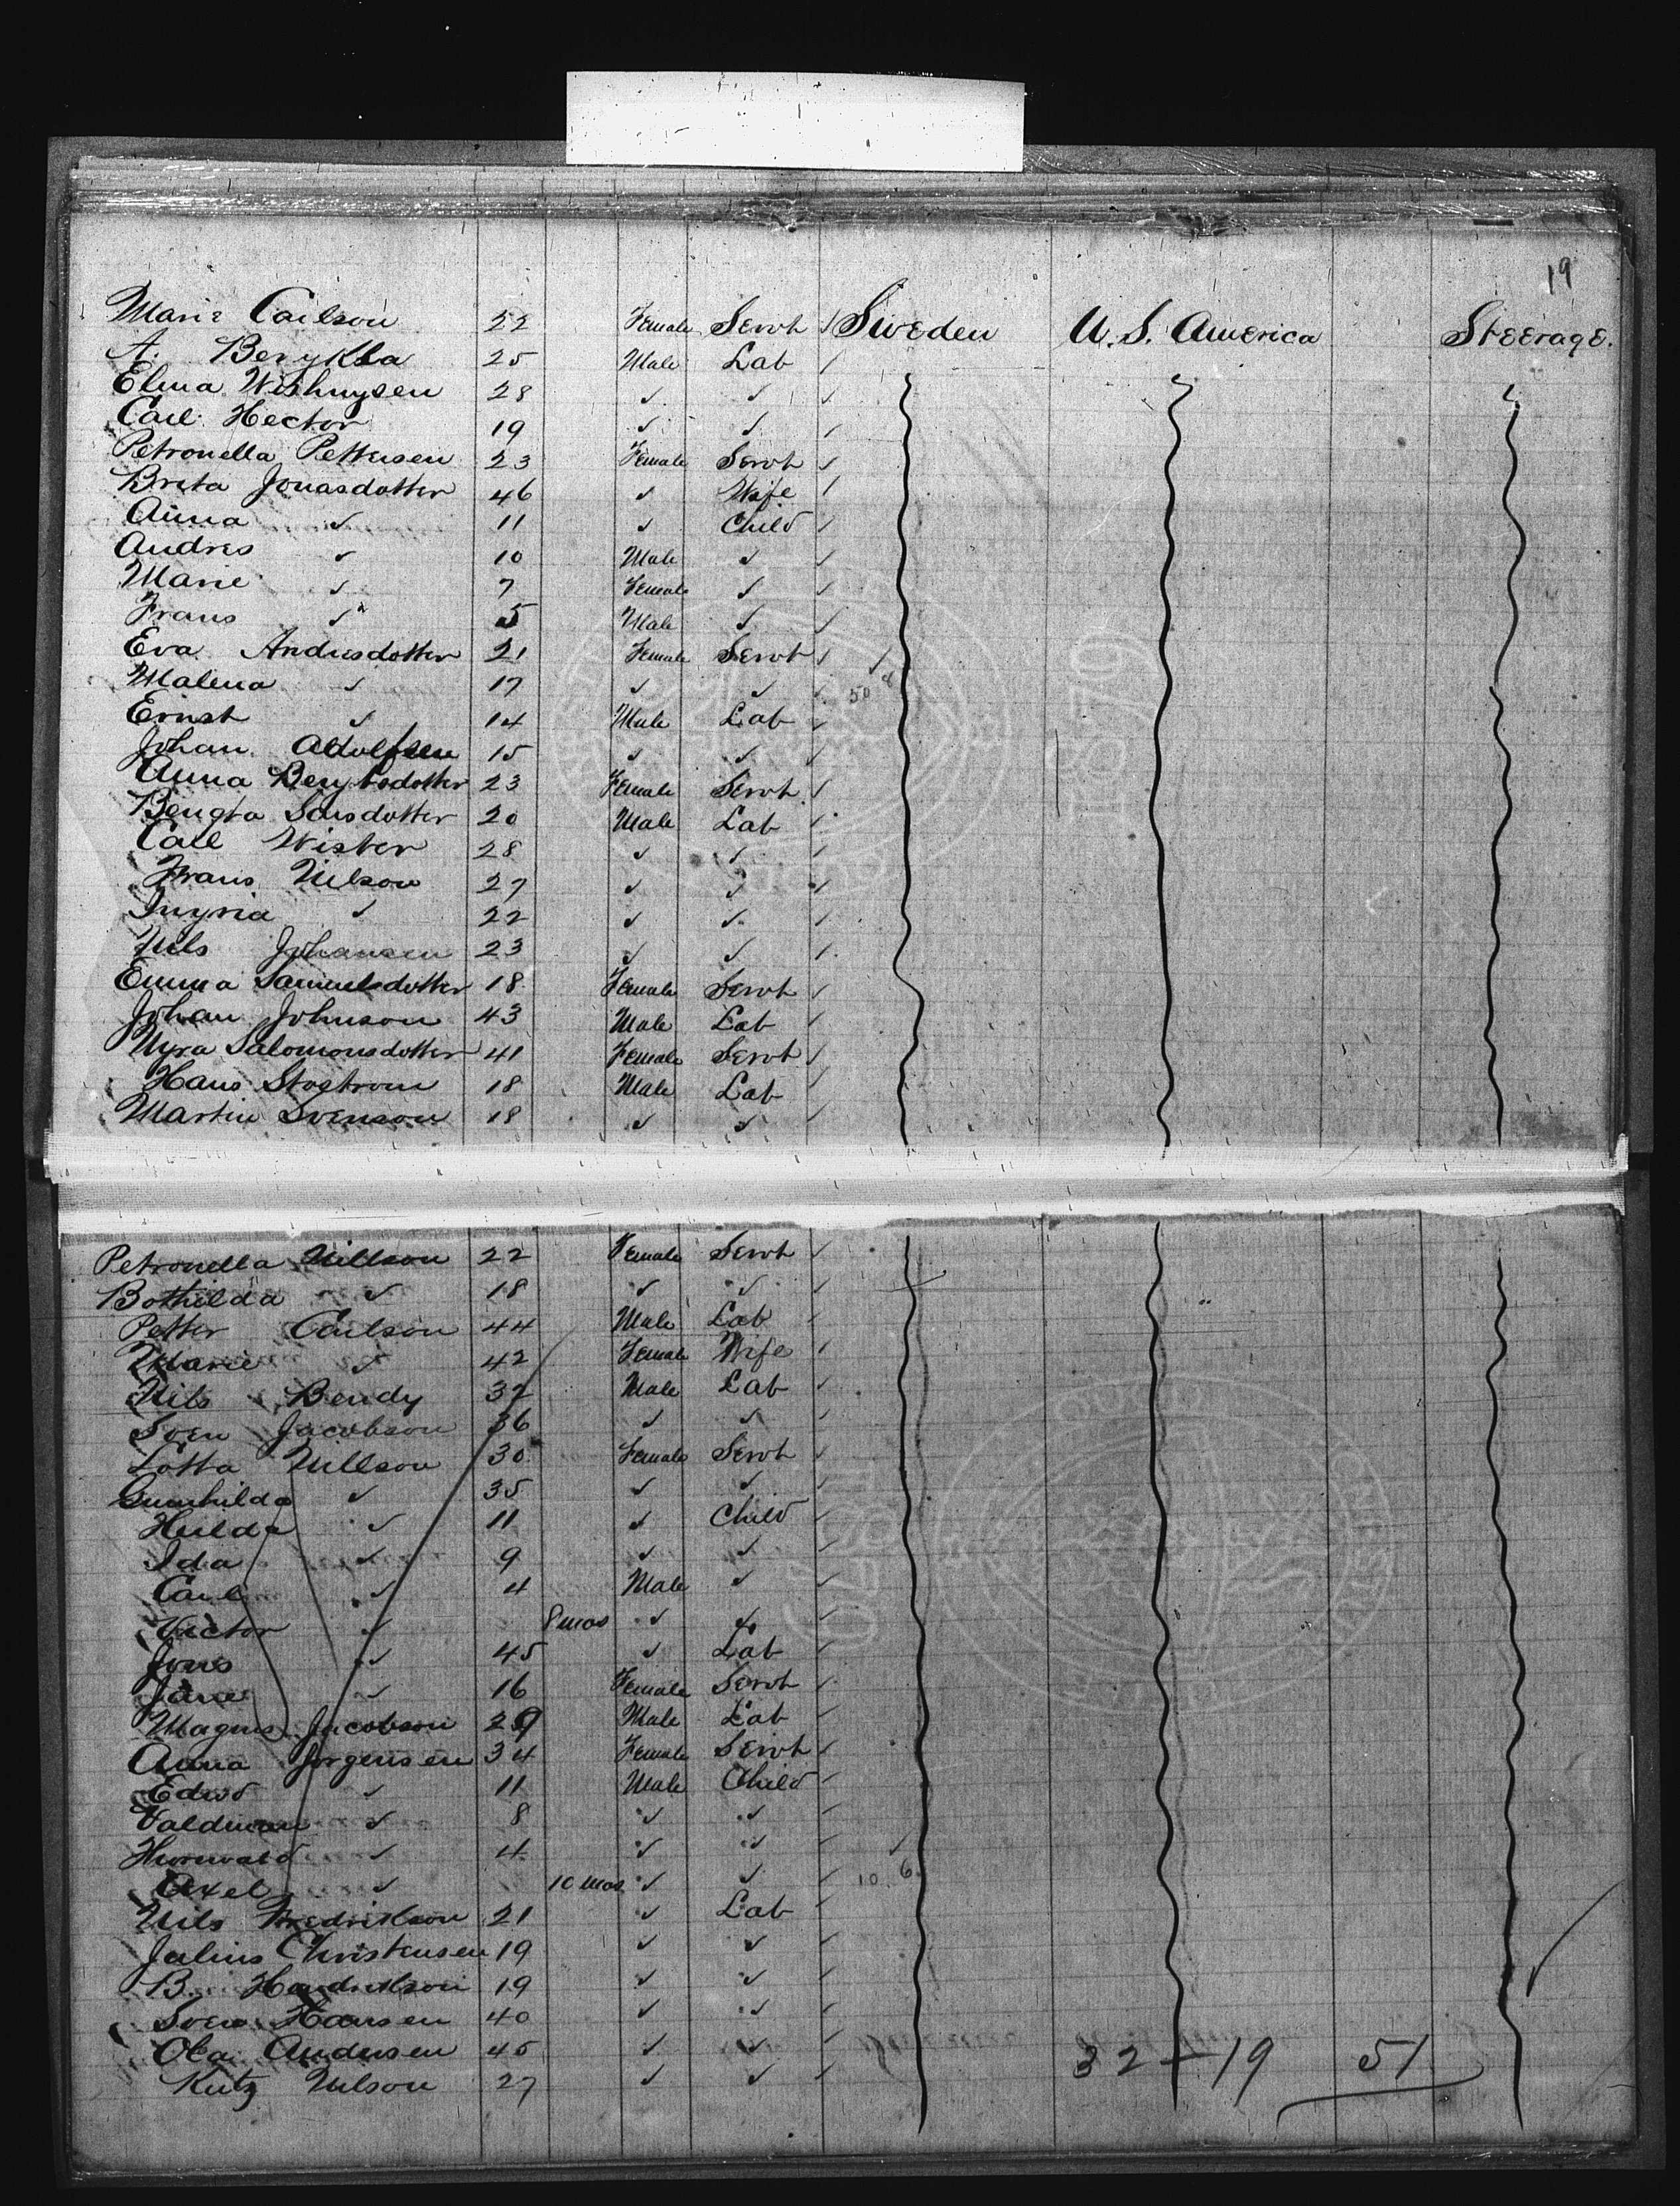 19
Marie Carlson 22 Female Servt Sweden U.S. America Steerage.
A. Benykla 25 Male Lab
Elma 28 ✓ ✓
Carl Hector 19 ✓ ✓
Petronella Pettersen 23 Female Servt
Breta Jonasdotter 46 ✓ Wife
Anna ✓ 11 ✓ Child
Andres ✓ 10 Male ✓
Marie ✓ 7 Female ✓
Frans ✓ 5 Male ✓
Eva Andersdotter 21 Female Servt
Malena ✓ 17 ✓ ✓ 50
Ernst ✓ 14 Male Lab
Johan Adolfsen 15 ✓ ✓
Anna 23 Female Servt
Bengta 20 Male Lab
Carl Wister 28 ✓ ✓
Frans Nilson 27 ✓ ✓
Ingria ✓ 22 ✓ ✓
Nils Johansen 23 ✓ ✓
Emma Samuelsdotter 18 Female Servt
Johan Johnson 43 Male Lab
Myra Salomonsdotter 41 Female Servt
Hans Stostrom 18 Male Lab
Martin Svenson 18 ✓ ✓
Petronella Nillson 22 Female Servt
Bothilda ✓ 18 ✓ ✓
Petter Carlson 44 Male Lab
Marie ✓ 42 Female Wife
Nils Bendy 32 Male Lab
Sven Jacobson 36 ✓ ✓
Lotta Nillson 30 Female Servt
Gunhilda ✓ 35 ✓ ✓
Hulda ✓ 11 ✓ Child
Ida ✓ 9 ✓ ✓
Carl ✓ 4 Male ✓
Victor ✓ 8 mos ✓ ✓
Jons ✓ 45 ✓ Lab
Jane ✓ 16 Female Servt
Magnus Jacobson 29 Male Lab
Anna Jorgensen 34 Female Servt
Edwd ✓ 11 Male Child
Valdman ✓ 8 ✓ ✓
✓ 4 ✓ ✓
Axel ✓ 10 mos ✓ ✓ 10 6
Nils Fredrikson 21 ✓ Lab
Julius Christensen 19 ✓ ✓
B. Hendrikson 19 ✓ ✓
Sven Hansen 40 ✓ ✓
Ola Andersen 45 ✓ ✓
Kutz Nilson 27 ✓ ✓
32 + 19 51